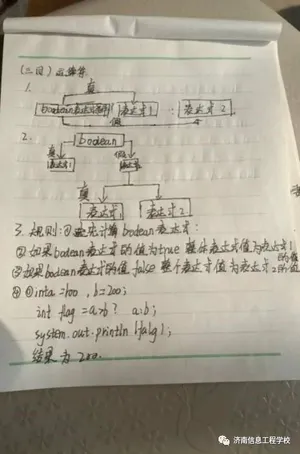 (三目)运算符
1.
真
boolean表达式 ? 表达式1 : 表达式2
假
2.
boolean
真 假
表达式1 表达式
真
表达式1 表达式2
3. 规则:①先计算boolean表达式:
②如果boolean表达式的值为true 整体表达式值为表达式1的值
③如果boolean表达式的值 false 整个表达式值为表达式2的值
④ ①int a=100 , b=200;
int flag =a>b? a:b;
system.out.println (flag);
结果为 200.
济南信息工程学校